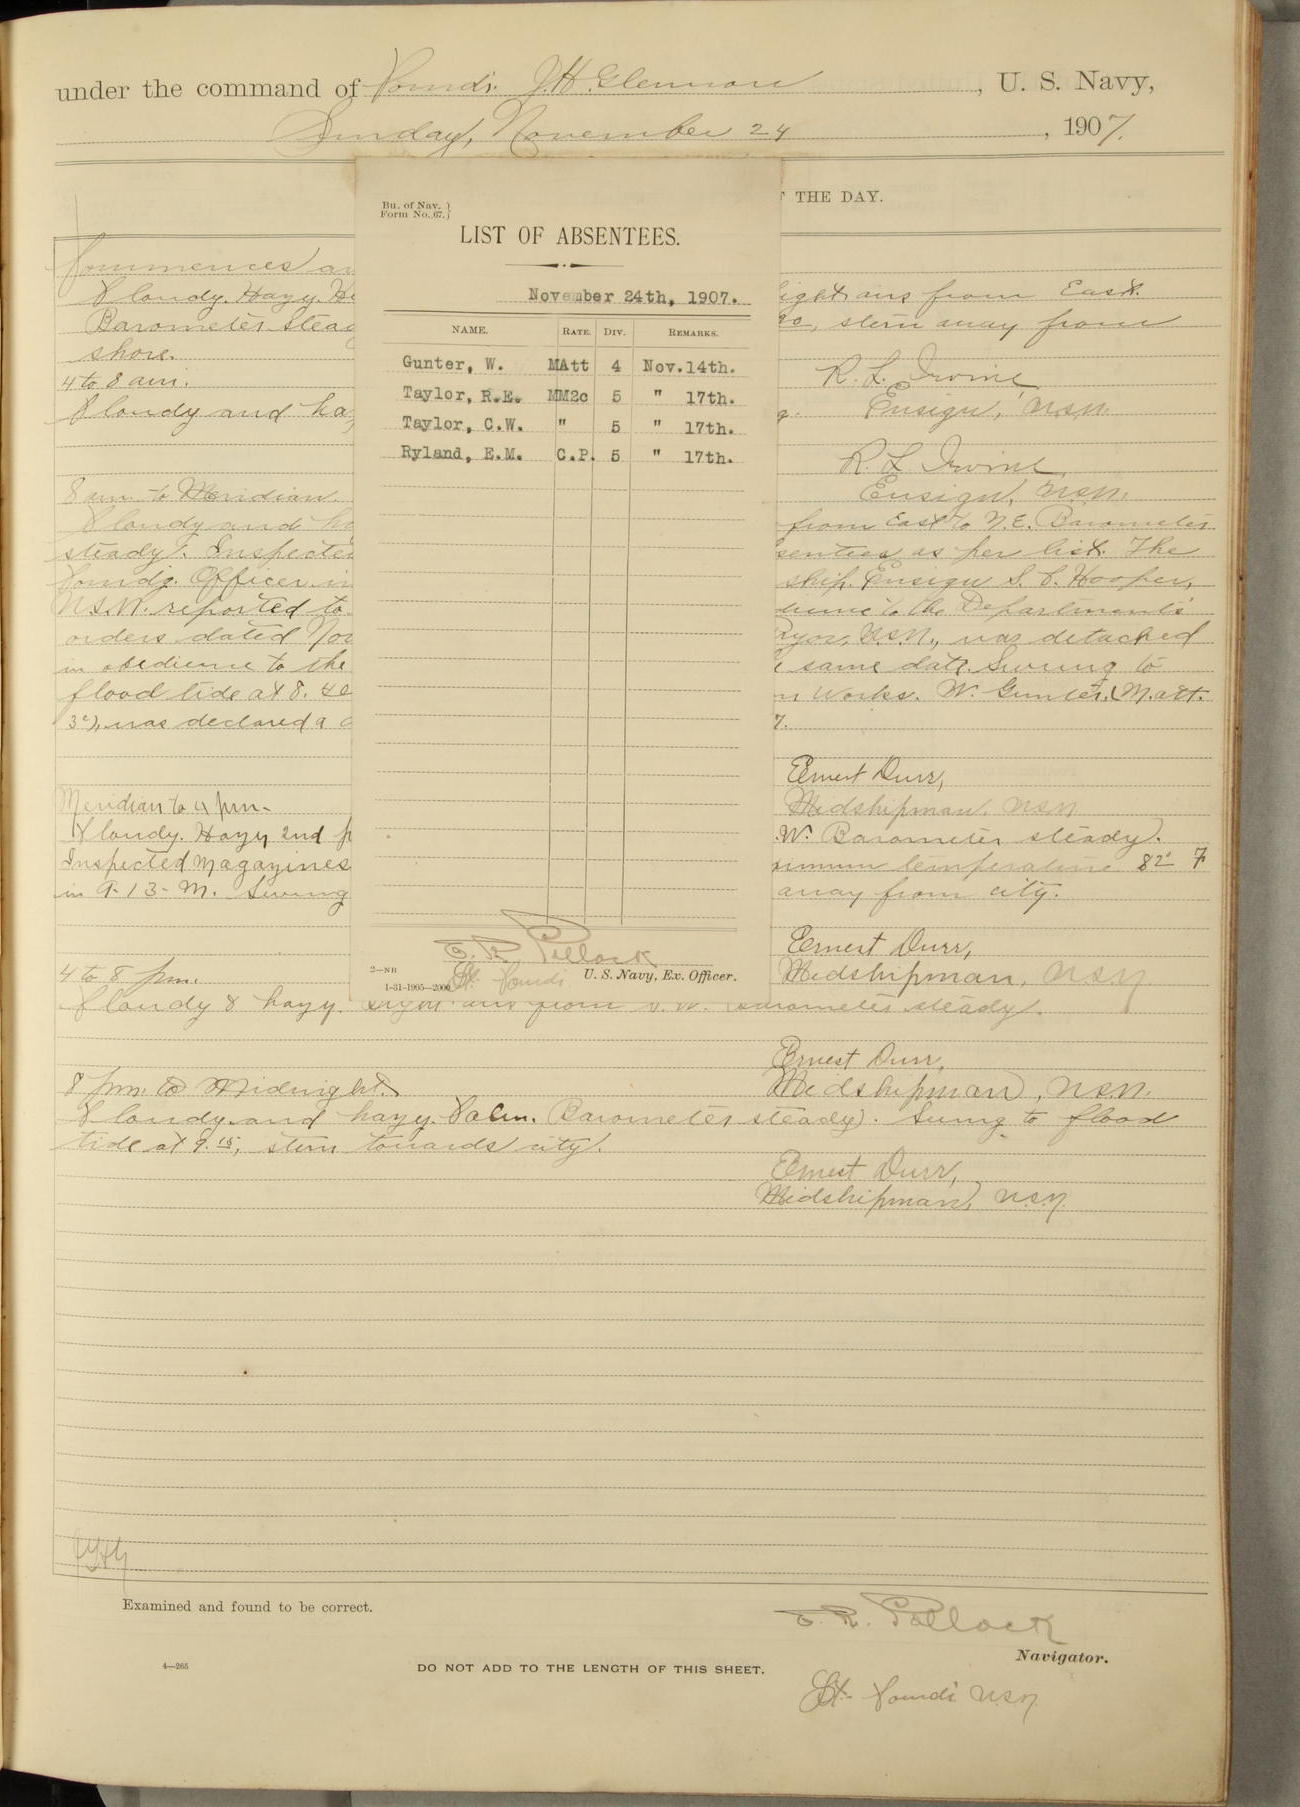 under the command of Comdr. J.H. Glennon, U. S. Navy,
Sunday, November 24, 1907.
THE DAY.
Bu. of Nav. }
Form No. 67. }
LIST OF ABSENTEES.
November 24th, 1907.
NAME. RATE. DIV. REMARKS.
Gunter, W. MAtt 4 Nov.14th.
Taylor, R.E. MM2c 5 " 17th.
Taylor, C.W. " 5 " 17th.
Ryland, E.M. C.P. 5 " 17th.
E. R. Pollock
Lt. Comdr. U. S. Navy, Ex. Officer.
2—NB
1-31-1905—2000
Commences
Cloudy. Hazy. airs from East.
Barometer stern away from
shore.
R. L. Irvine,
4 to 8 am. Ensign, U.S.N.
Cloudy and
R. L. Irvine
8 am to Meridian Ensign, U.S.N.
Cloudy and from East to N.E. Barometer
steady. Inspected as per list. The
Comdg. Officer ship. Ensign S. C. Hooper,
U.S.N. reported to the Department's
orders dated U.S.N., was detached
in obedience to the same date. Swung to
flood tide at 8.40 Works. W. Gunter, (M.att.
3c), was declared a
Ernest Durr,
Midshipman, U.S.N.
Meridian to 4 pm.
Cloudy. Hazy 2nd W. Barometer steady.
Inspected Magazines temperature 82° F
in A-13-M. Swung away from city.
Ernest Durr,
4 to 8 pm. Midshipman, U.S.N.
Cloudy & hazy. Light airs from S.W. Barometer steady.
Ernest Durr,
8 pm. to Midnight. Midshipman, U.S.N.
Cloudy and hazy. Calm. Barometer steady. Swung to flood
tide at 9.15, stern towards city.
Ernest Durr,
Midshipman, U.S.N.
Examined and found to be correct.
E. R. Pollock
Navigator.
4—265
DO NOT ADD TO THE LENGTH OF THIS SHEET.
Lt. Comdr. U.S.N.